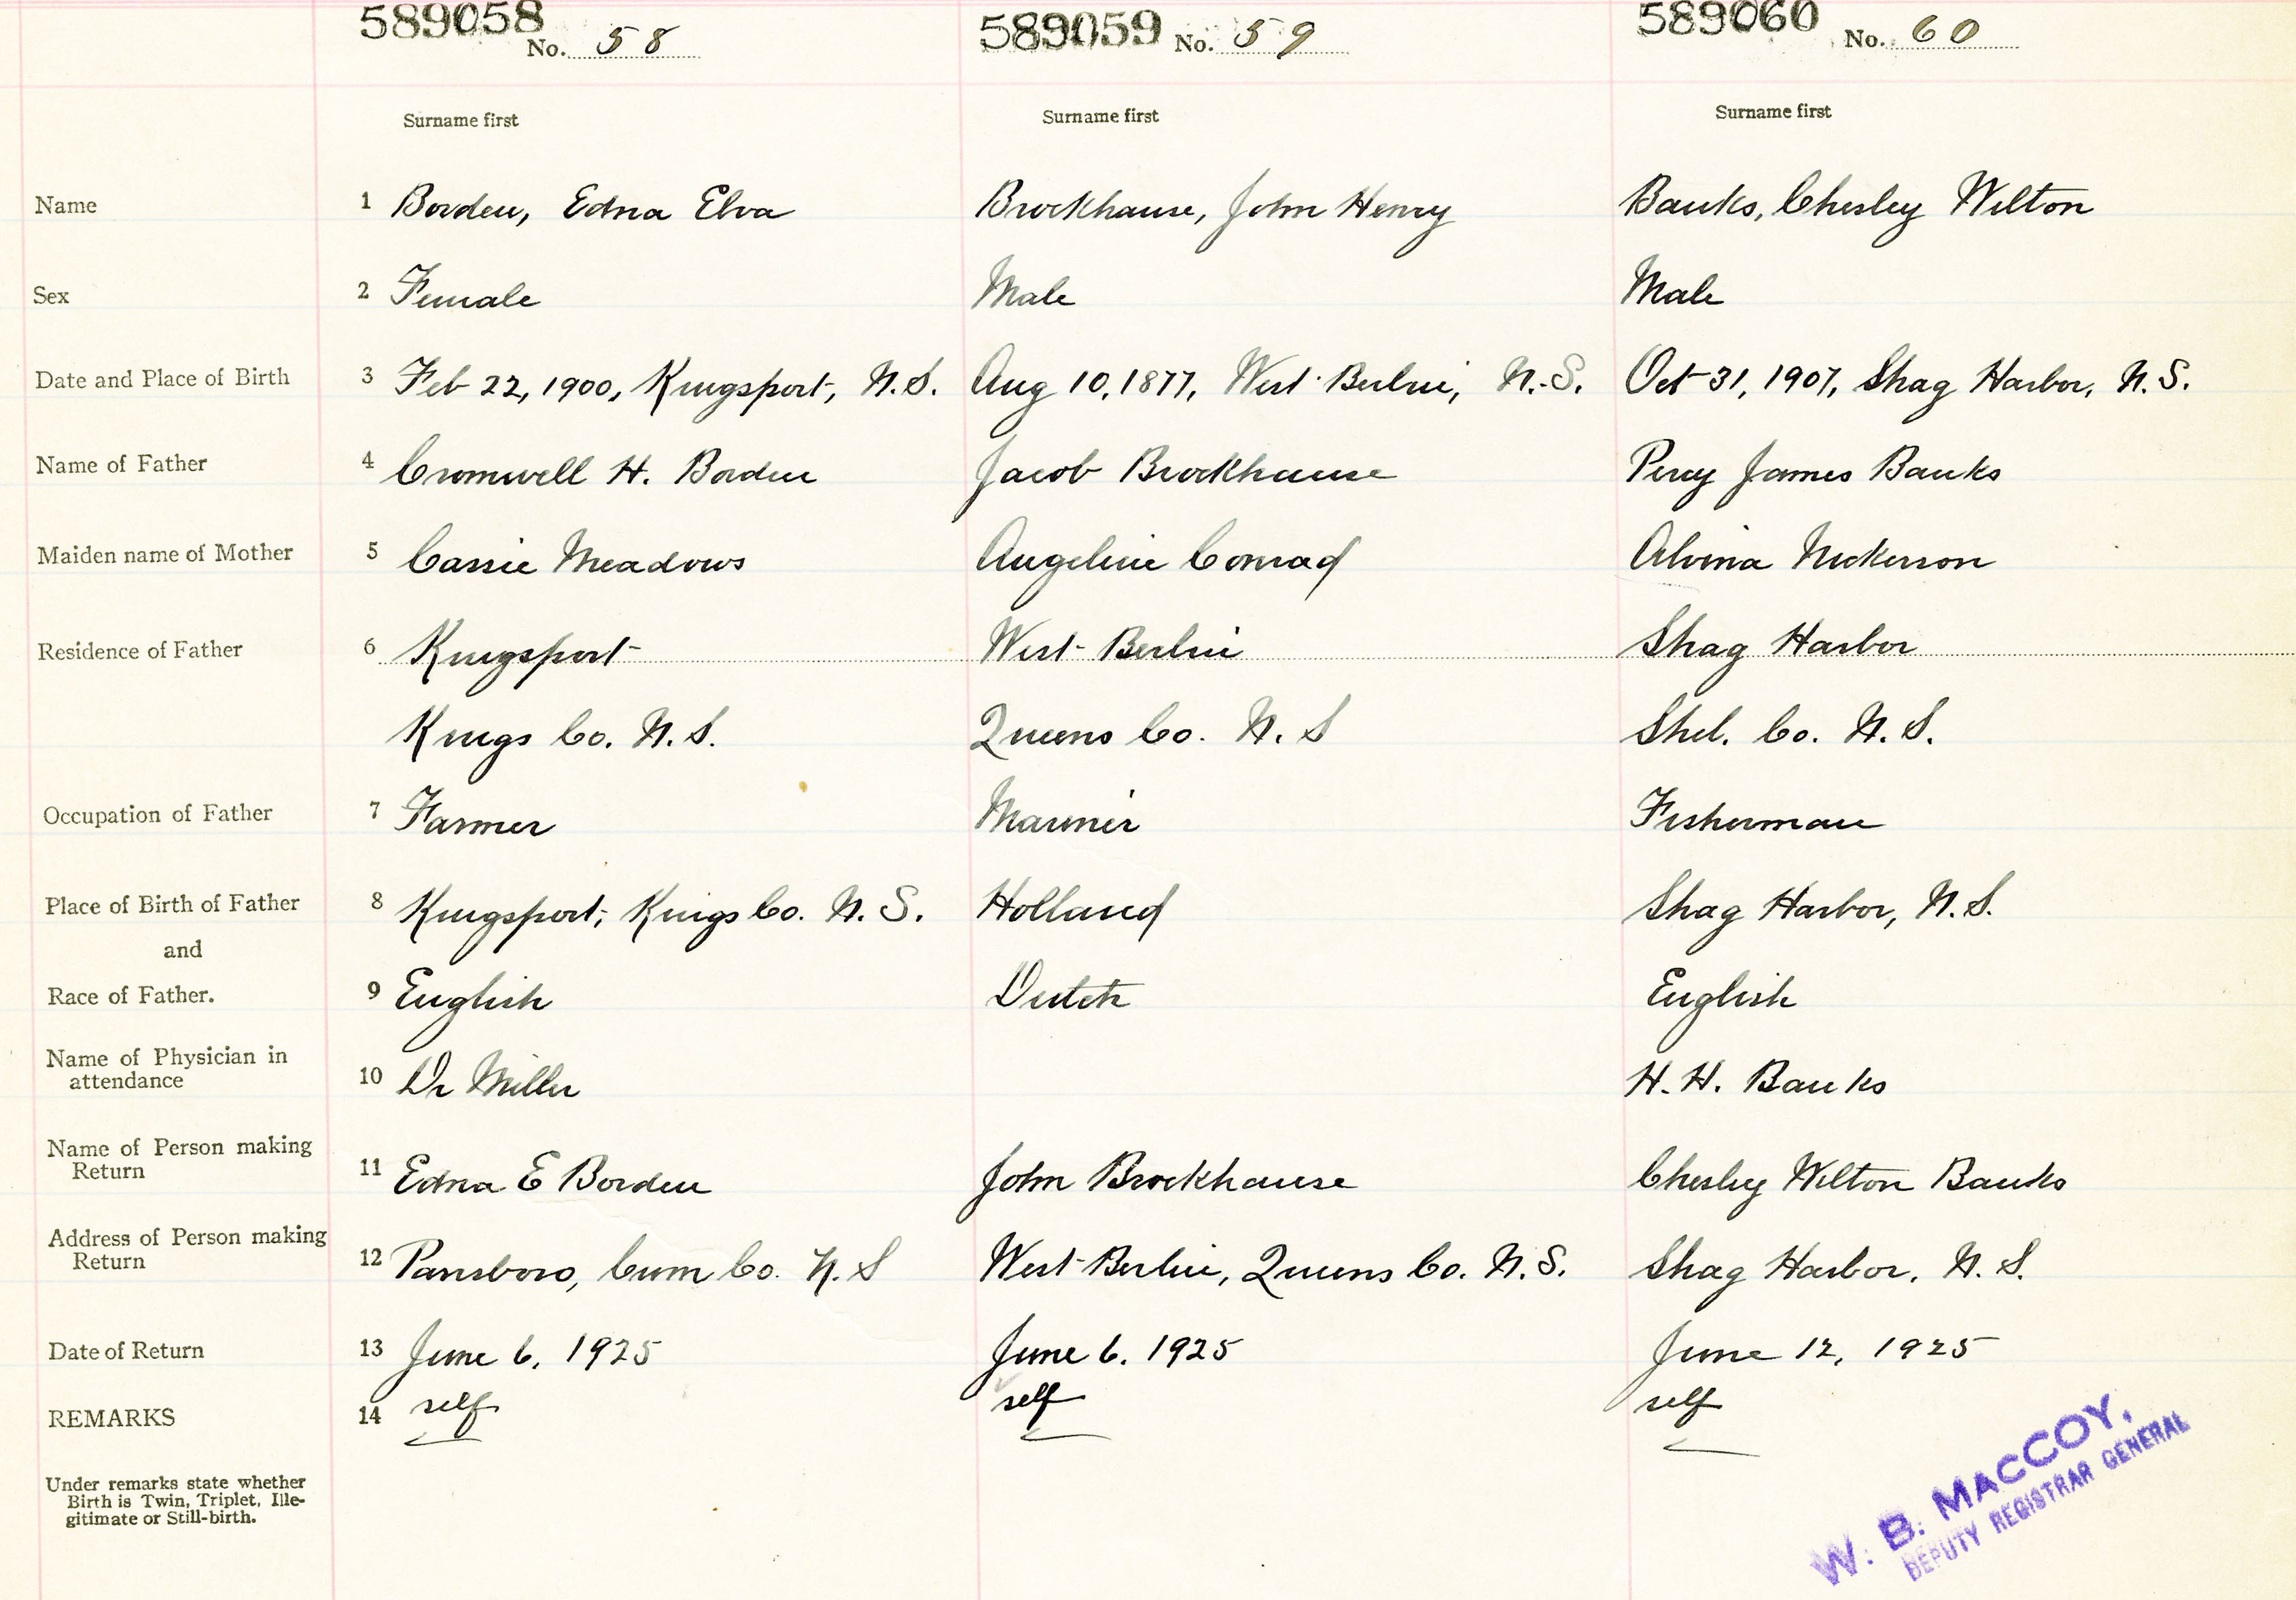 589058 No. 58 589059 No. 59 589060 No. 60
Surname first Surname first Surname first
Name 1 Borden, Edna Elva Brockhause, John Henry Banks, Chesley Wilton
Sex 2 Female Male Male
Date and Place of Birth 3 Feb 22, 1900, Kingsport, N.S. Aug 10, 1877, West Berlin, N.S. Oct 31, 1907, Shag Harbor, N.S.
Name of Father 4 Cromwell H. Borden Jacob Brockhause Percy James Banks
Maiden name of Mother 5 Cassie Meadows Angeline Conrad Alvina Nickerson
Residence of Father 6 Kingsport West Berlin Shag Harbor
Kings Co. N.S. Queens Co. N.S Shel. Co. N.S.
Occupation of Father 7 Farmer Mariner Fisherman
Place of Birth of Father 8 Kingsport, Kings Co. N.S. Holland Shag Harbor, N.S.
and
Race of Father. 9 English Dutch English
Name of Physician in
attendance 10 Dr Miller H.H. Banks
Name of Person making
Return 11 Edna E Borden John Brockhause Chesley Wilton Banks
Address of Person making
Return 12 Parrsboro, Cum Co. N.S West Berlin, Queens Co. N.S. Shag Harbor, N.S.
Date of Return 13 June 6, 1925 June 6. 1925 June 12, 1925
REMARKS 14 self self self
Under remarks state whether
Birth is Twin, Triplet, Ille-
gitimate or Still-birth.
W. B. MACCOY,
DEPUTY REGISTRAR GENERAL